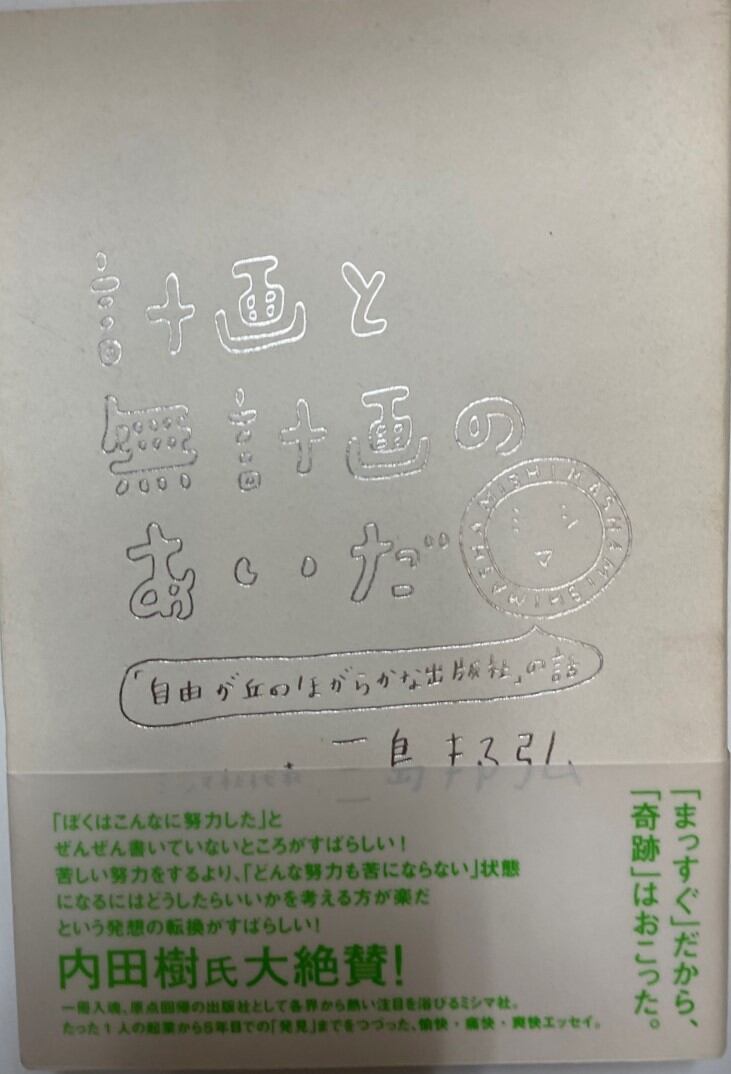 計画と
無計画の
あいだ
MISHIMASHA MISHIMASHA
「自由が丘のほがらかな出版社」の話
三島邦弘
「まっすぐ」だから、
「奇跡」はおこった。
「ぼくはこんなに努力した」と
ぜんぜん書いていないところがすばらしい!
苦しい努力をするより、「どんな努力も苦にならない」状態
になるにはどうしたらいいかを考える方が楽だ
という発想の転換がすばらしい!
内田樹氏大絶賛!
一冊入魂、原点回帰の出版社として各界から熱い注目を浴びるミシマ社。
たった1人の起業から5年目での「発見」までをつづった、愉快・痛快・爽快エッセイ。